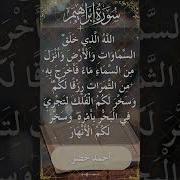 سورة إبراهيم
اللَّهُ الَّذِي خَلَقَ
السَّمَاوَاتِ وَالْأَرْضَ وَأَنْزَلَ
مِنَ السَّمَاءِ مَاءً فَأَخْرَجَ بِهِ
مِنَ الثَّمَرَاتِ رِزْقًا لَكُمْ
وَسَخَّرَ لَكُمُ الْفُلْكَ لِتَجْرِيَ
فِي الْبَحْرِ بِأَمْرِهِ وَسَخَّرَ
لَكُمُ الْأَنْهَارَ
احمد خضر